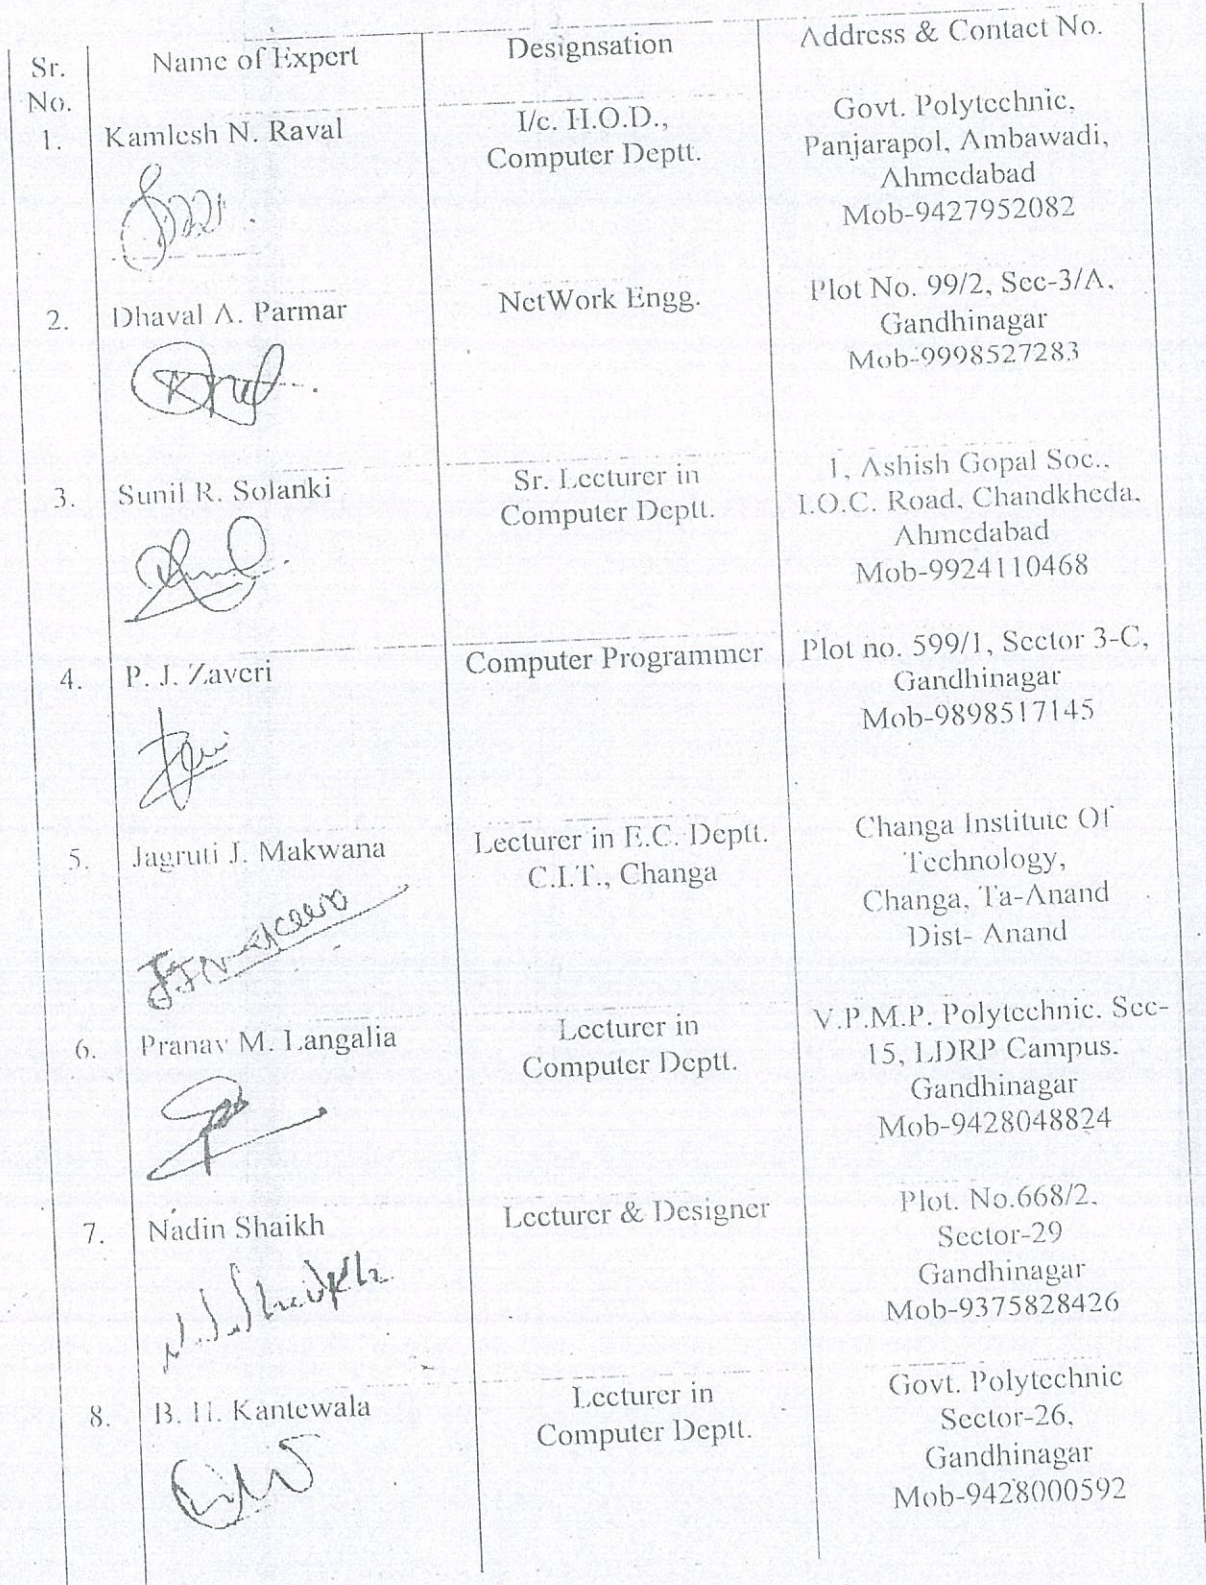 Sr. No. Name of Expert Designsation Address & Contact No.
1. Kamlesh N. Raval I/c. H.O.D., Computer Deptt. Govt. Polytechnic,
Panjarapol, Ambawadi,
Ahmedabad
Mob-9427952082
2. Dhaval A. Parmar NetWork Engg. Plot No. 99/2, Sec-3/A,
Gandhinagar
Mob-9998527283
3. Sunil R. Solanki Sr. Lecturer in Computer Deptt. 1, Ashish Gopal Soc.,
I.O.C. Road, Chandkheda,
Ahmedabad
Mob-9924110468
4. P. J. Zaveri Computer Programmer Plot no. 599/1, Sector 3-C,
Gandhinagar
Mob-9898517145
5. Jagruti J. Makwana Lecturer in E.C. Deptt. C.I.T., Changa Changa Institute Of
Technology,
Changa, Ta-Anand
Dist- Anand
6. Pranav M. Langalia Lecturer in Computer Deptt. V.P.M.P. Polytechnic. Sec-
15, LDRP Campus.
Gandhinagar
Mob-9428048824
7. Nadin Shaikh Lecturer & Designer Plot. No.668/2,
N.I.Shaikh Sector-29
Gandhinagar
Mob-9375828426
8. B. H. Kantewala Lecturer in Computer Deptt. Govt. Polytechnic
Sector-26,
Gandhinagar
Mob-9428000592